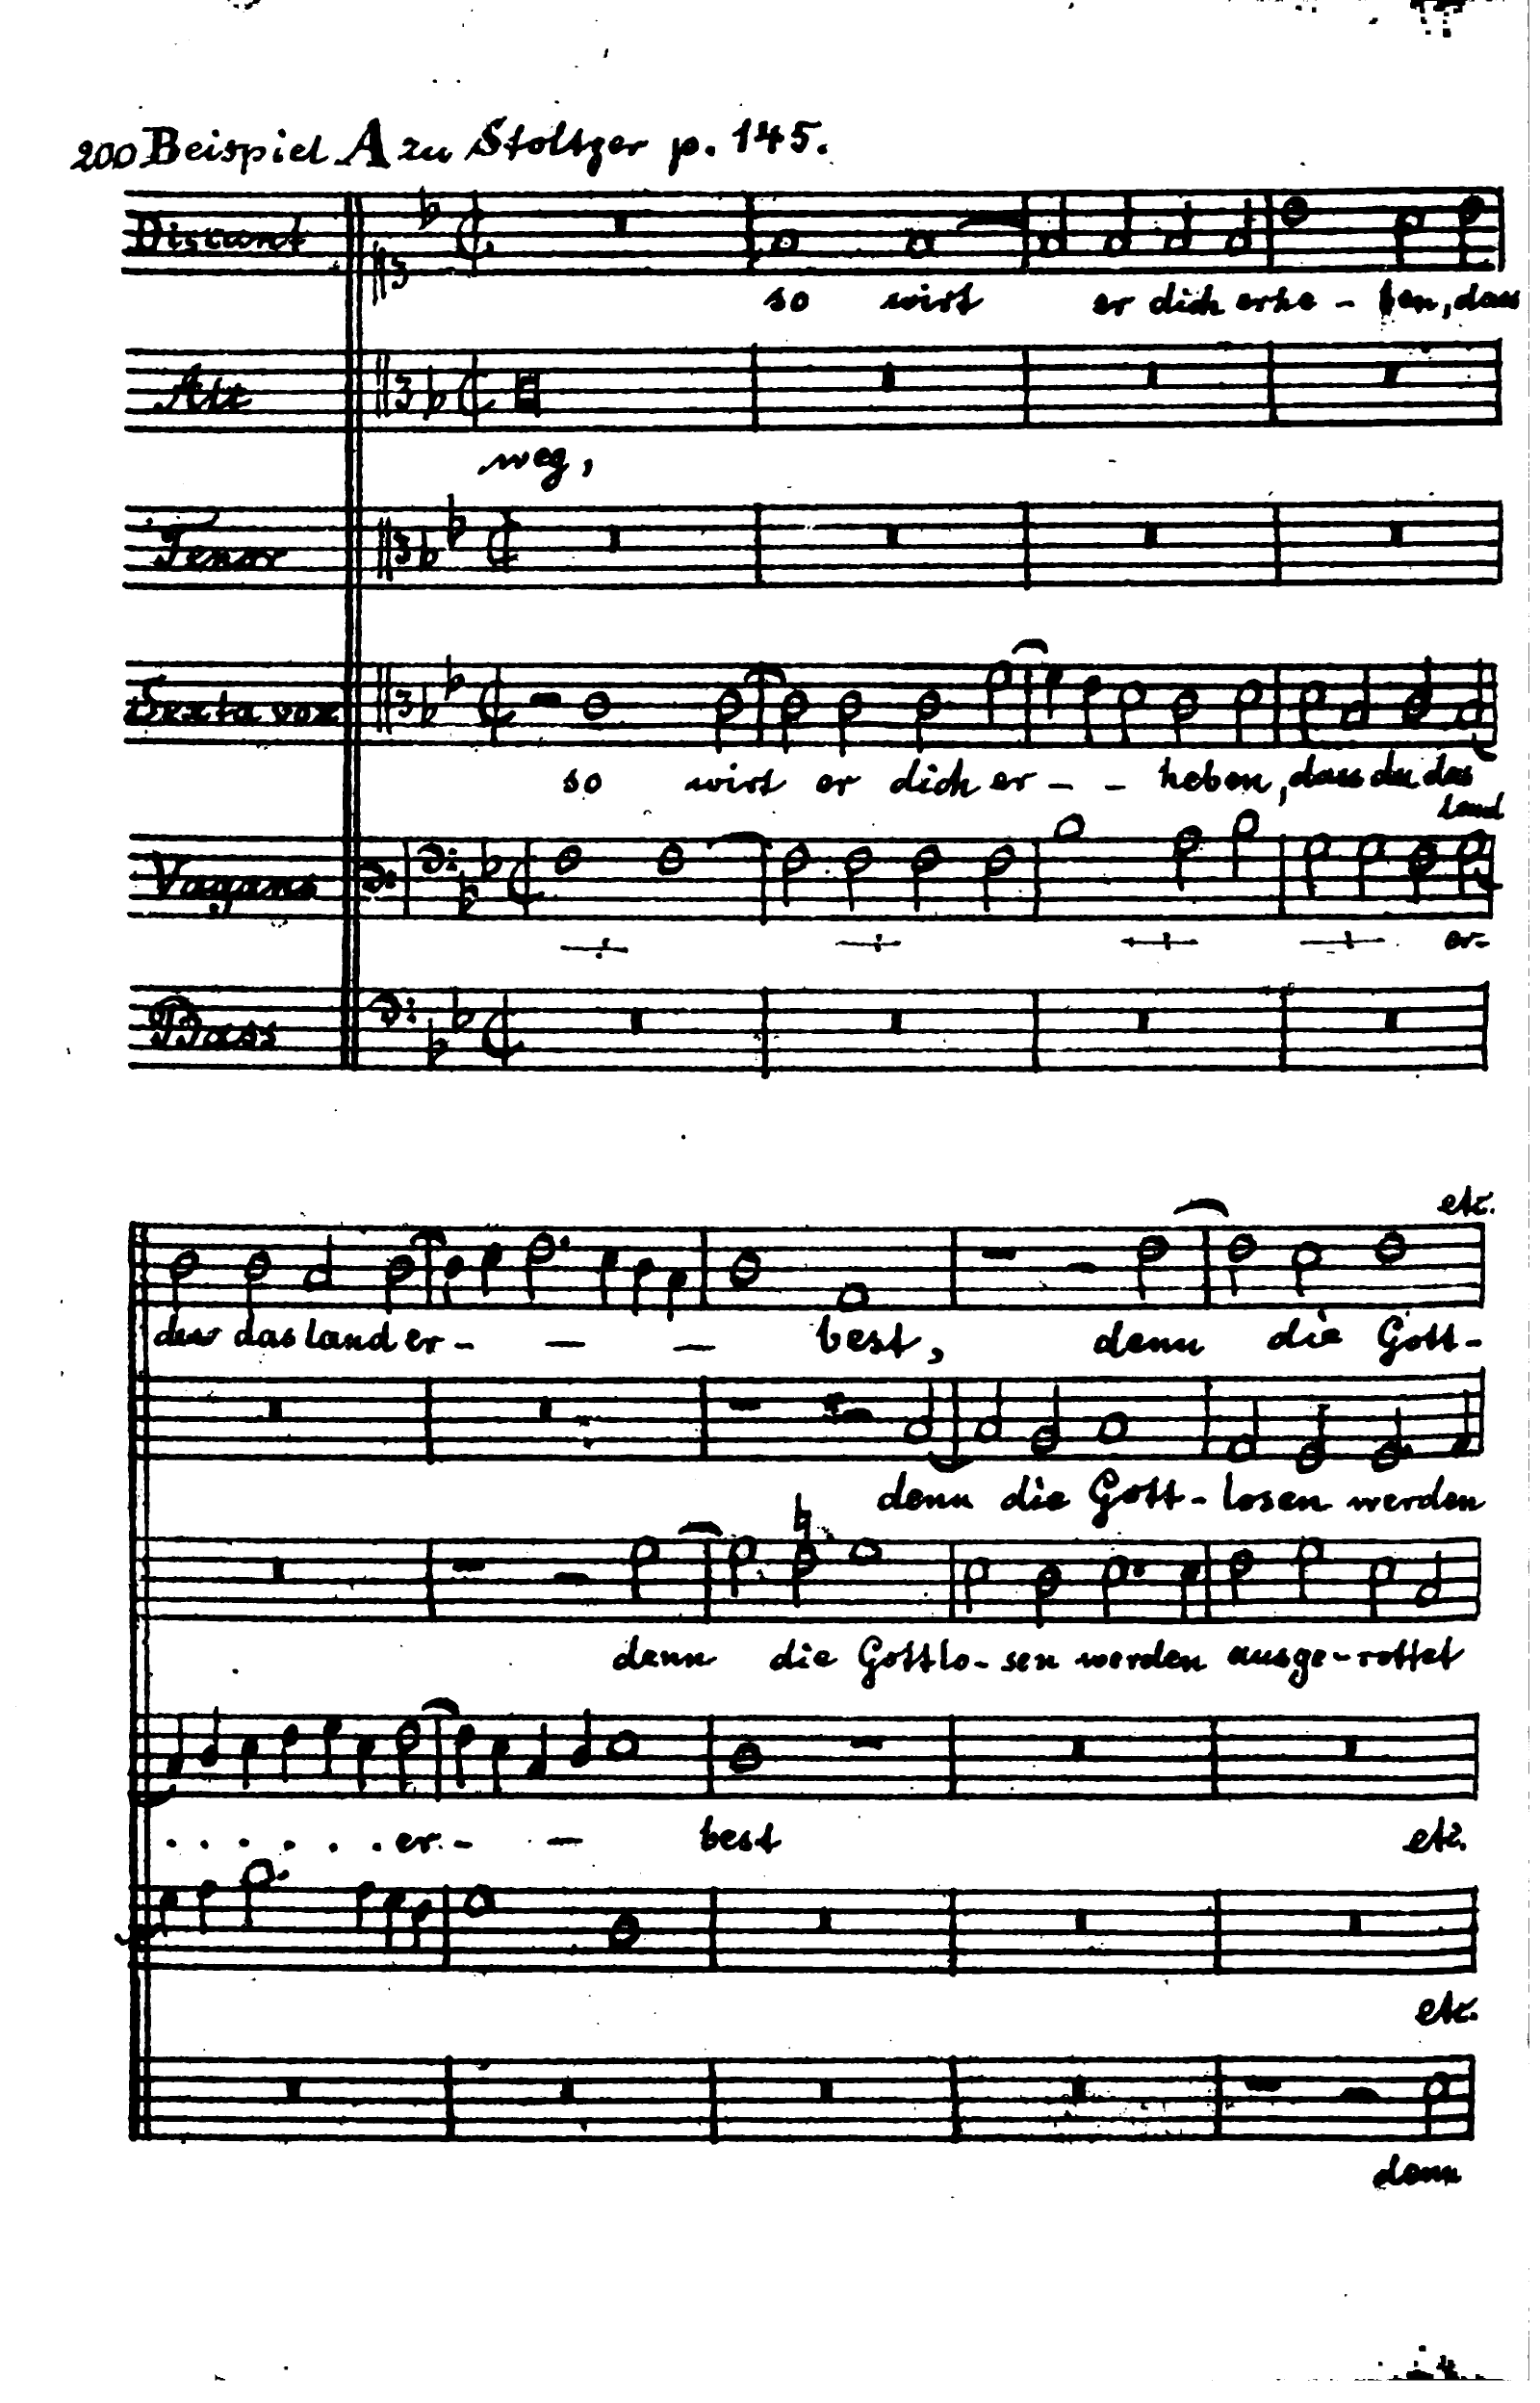 200 Beispiel A zu Stoltzer p. 145.
Discant
so wirt er dich erhe - ben, dass
Alt
weg,
Tenor
Sexta vox
so wirt er dich er - - heben, dass du das
land
Vagans
er-
Bass
etc.
du das land er - — — best, denn die Gott-
denn die Gott - losen werden
denn die Gottlo - sen werden ausge - rottet
. . . . . . er - — best etc.
etc.
denn